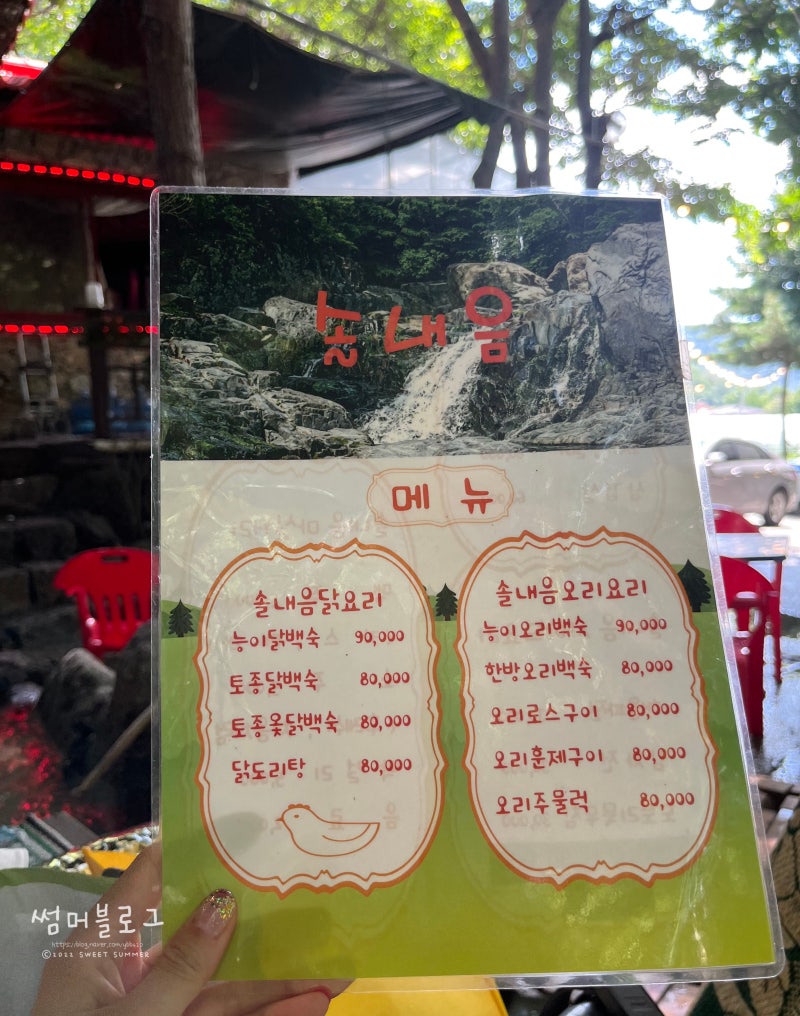 솔내음
메뉴
솔내음닭요리
능이닭백숙 90,000
토종닭백숙 80,000
토종옻닭백숙 80,000
닭도리탕 80,000
솔내음오리요리
능이오리백숙 90,000
한방오리백숙 80,000
오리로스구이 80,000
오리훈제구이 80,000
오리주물럭 80,000
썸머블로그
©2022 SWEET SUMMER